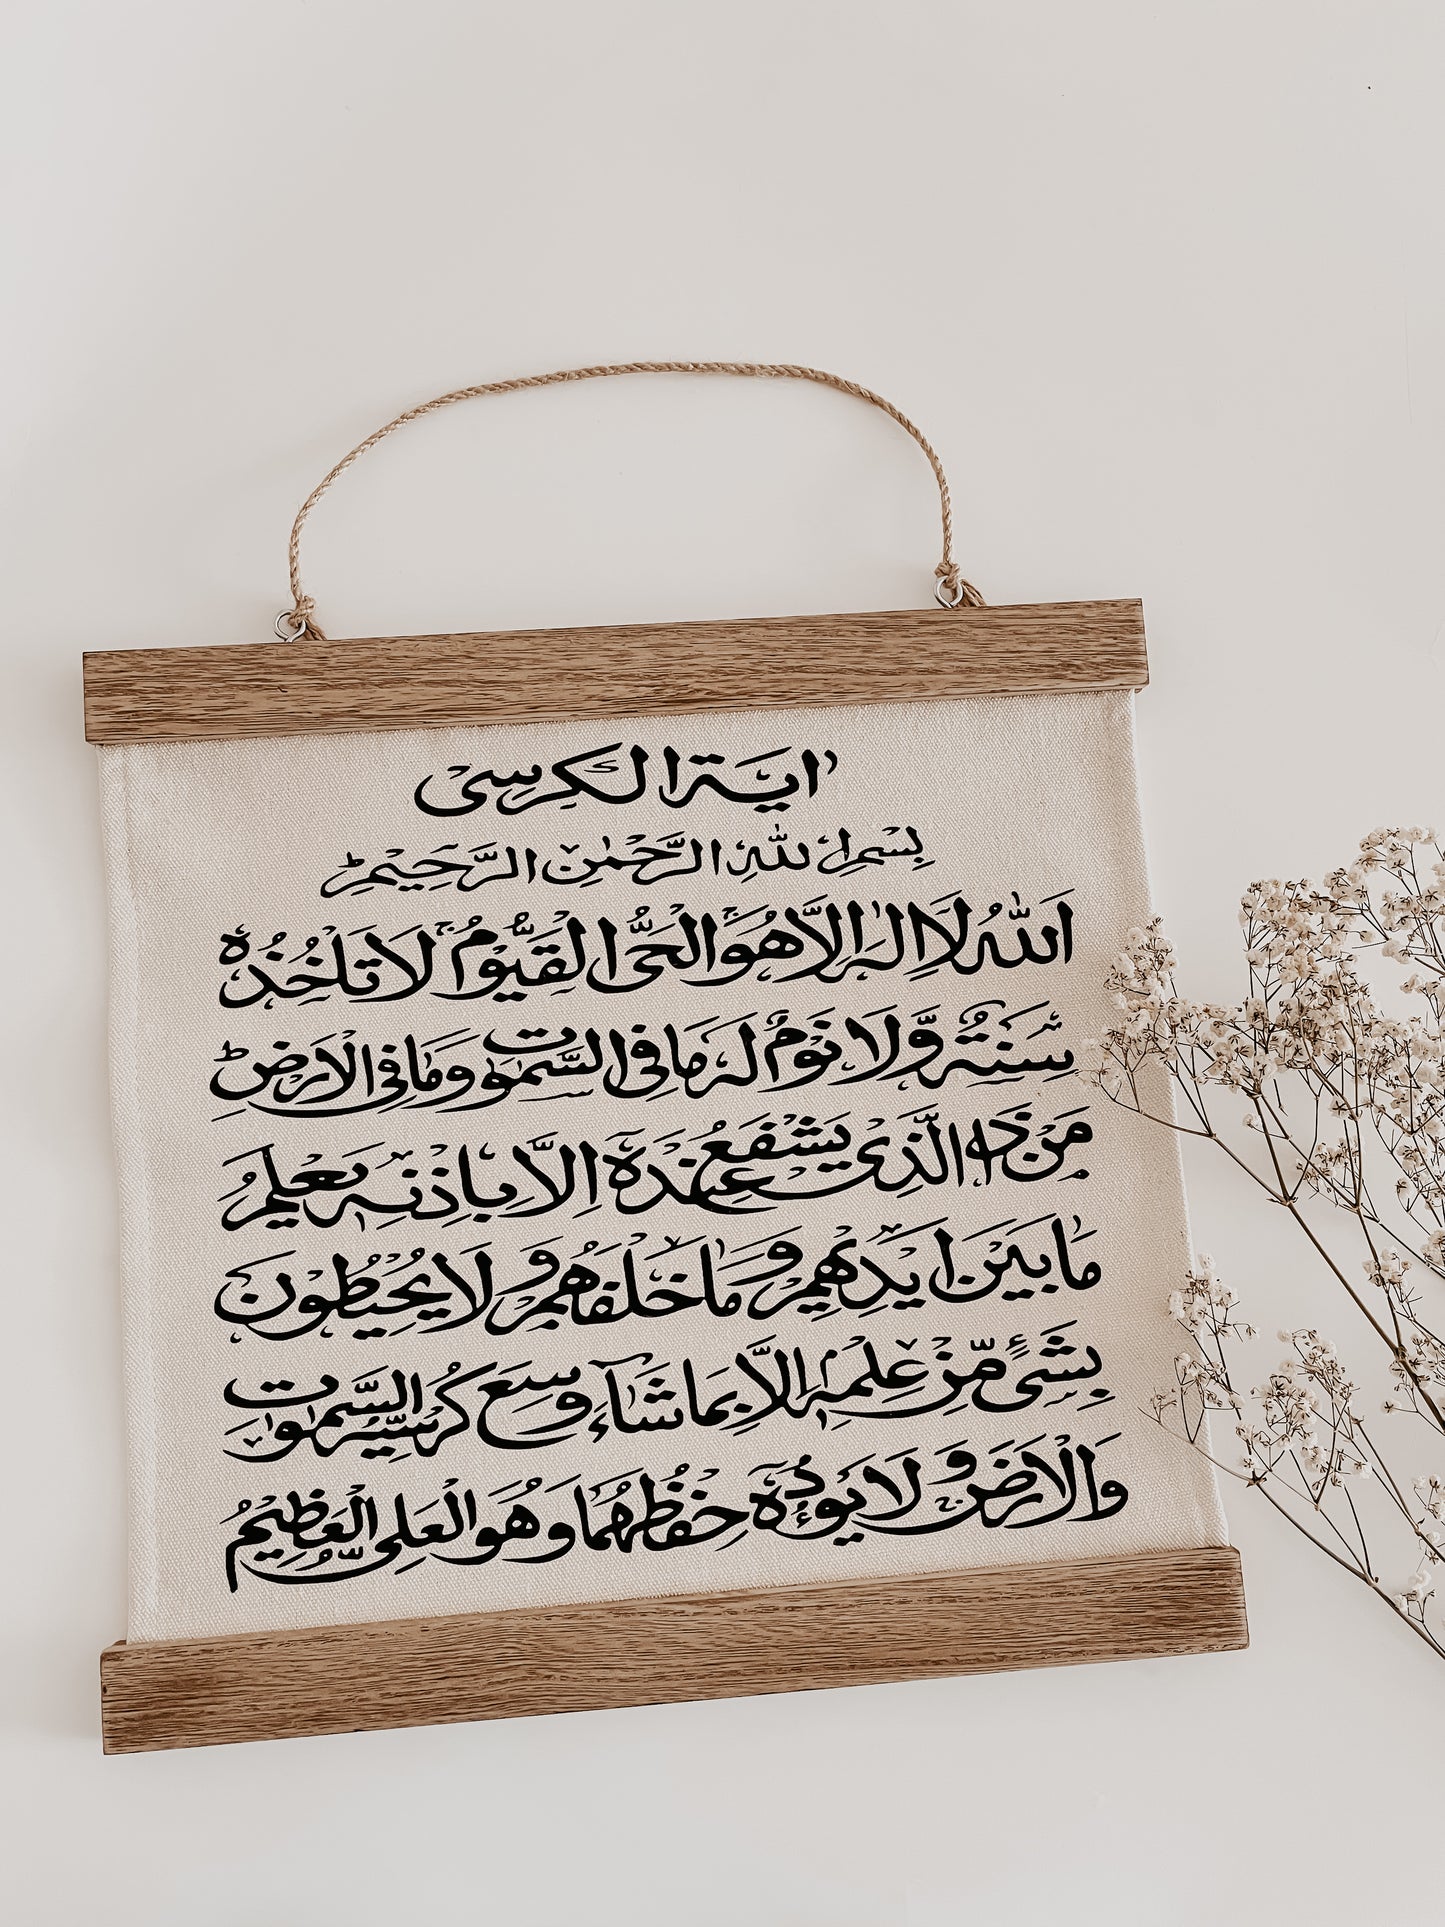 اٰية الكرسى
بِسْمِ اللهِ الرَّحْمٰنِ الرَّحِيْمِ ؕ
اَللّٰهُ لَا اِلٰهَ اِلَّا هُوَ ۚ اَلْحَىُّ الْقَيُّوْمُ ۚ لَا تَاْخُذُهٗ
سِنَةٌ وَّلَا نَوْمٌ لَهٗ مَا فِى السَّمٰوٰتِ وَمَا فِى الْاَرْضِ ؕ
مَنْ ذَا الَّذِىْ يَشْفَعُ عِنْدَهٗٓ اِلَّا بِاِذْنِهٖ يَعْلَمُ
مَا بَيْنَ اَيْدِيْهِمْ وَمَا خَلْفَهُمْ وَلَا يُحِيْطُوْنَ
بِشَىْءٍ مِّنْ عِلْمِهٖٓ اِلَّا بِمَا شَآءَ وَسِعَ كُرْسِيُّهُ السَّمٰوٰتِ
وَالْاَرْضَ وَلَا يَئُوْدُهٗ حِفْظُهُمَا وَهُوَ الْعَلِىُّ الْعَظِيْمُ